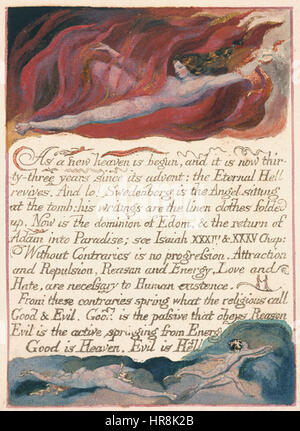 As a new heaven is begun, and it is now thir-
ty-three years since its advent: the Eternal Hell
revives. And lo! Swedenborg is the Angel sitting
at the tomb; his writings are the linen clothes folded
up. Now is the dominion of Edom, & the return of
Adam into Paradise; see Isaiah XXXIV & XXXV Chap:
Without Contraries is no progression. Attraction
and Repulsion, Reason and Energy, Love and
Hate, are necessary to Human existence.
From these contraries spring what the religious call
Good & Evil. Good is the passive that obeys Reason
Evil is the active springing from Energy
Good is Heaven. Evil is Hell
HR8K2B